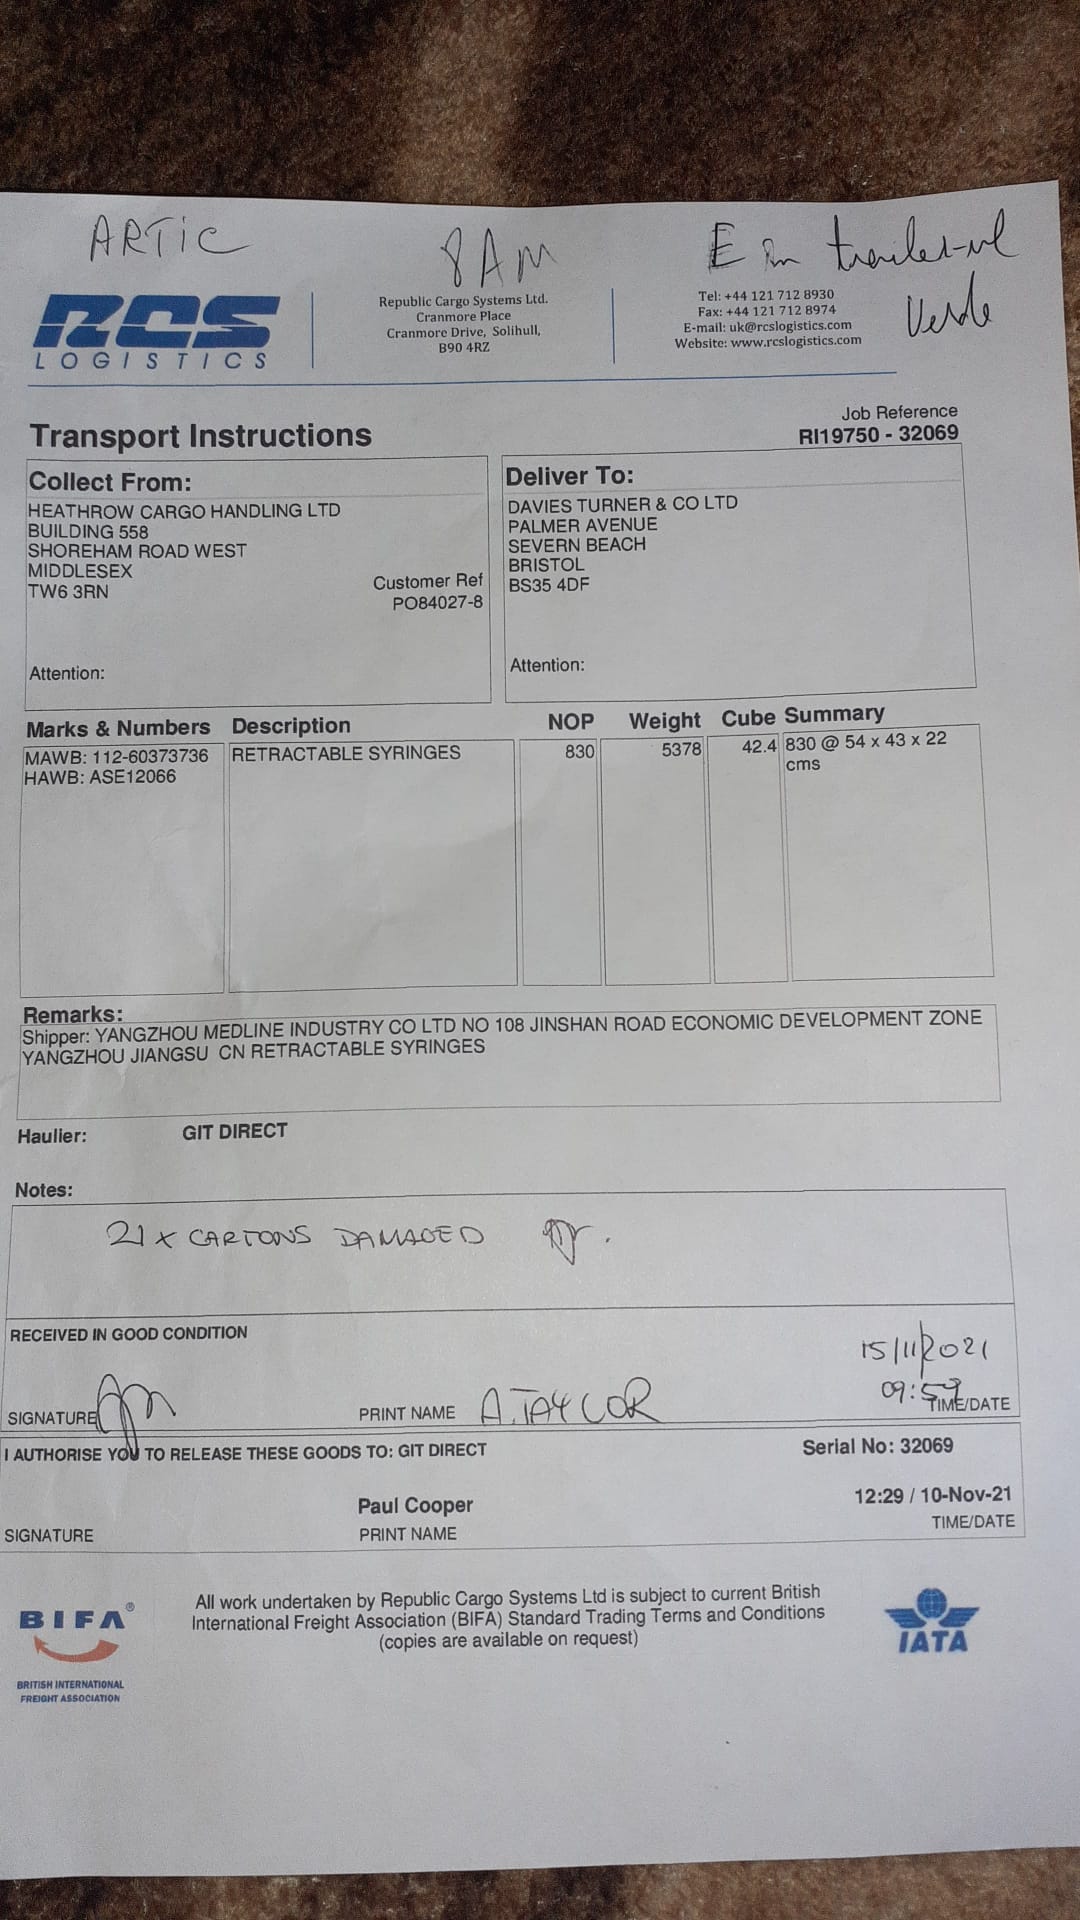 ARTIC
8AM
E în trailer-ul
Verde
RCS
LOGISTICS
Republic Cargo Systems Ltd.
Cranmore Place
Cranmore Drive, Solihull,
B90 4RZ
Tel: +44 121 712 8930
Fax: +44 121 712 8974
E-mail: uk@rcslogistics.com
Website: www.rcslogistics.com
Transport Instructions
Job Reference
RI19750 - 32069
Collect From:
HEATHROW CARGO HANDLING LTD
BUILDING 558
SHOREHAM ROAD WEST
MIDDLESEX
TW6 3RN
Customer Ref
PO84027-8
Attention:
Deliver To:
DAVIES TURNER & CO LTD
PALMER AVENUE
SEVERN BEACH
BRISTOL
BS35 4DF
Attention:
Marks & Numbers Description NOP Weight Cube Summary
MAWB: 112-60373736 RETRACTABLE SYRINGES 830 5378 42.4 830 @ 54 x 43 x 22
HAWB: ASE12066 cms
Remarks:
Shipper: YANGZHOU MEDLINE INDUSTRY CO LTD NO 108 JINSHAN ROAD ECONOMIC DEVELOPMENT ZONE
YANGZHOU JIANGSU CN RETRACTABLE SYRINGES
Haulier: GIT DIRECT
Notes:
21 x CARTONS DAMAGED
RECEIVED IN GOOD CONDITION
15/11/2021
09:59
SIGNATURE PRINT NAME A.TAYLOR TIME/DATE
I AUTHORISE YOU TO RELEASE THESE GOODS TO: GIT DIRECT Serial No: 32069
Paul Cooper 12:29 / 10-Nov-21
SIGNATURE PRINT NAME TIME/DATE
BIFA®
BRITISH INTERNATIONAL
FREIGHT ASSOCIATION
All work undertaken by Republic Cargo Systems Ltd is subject to current British
International Freight Association (BIFA) Standard Trading Terms and Conditions
(copies are available on request)
IATA